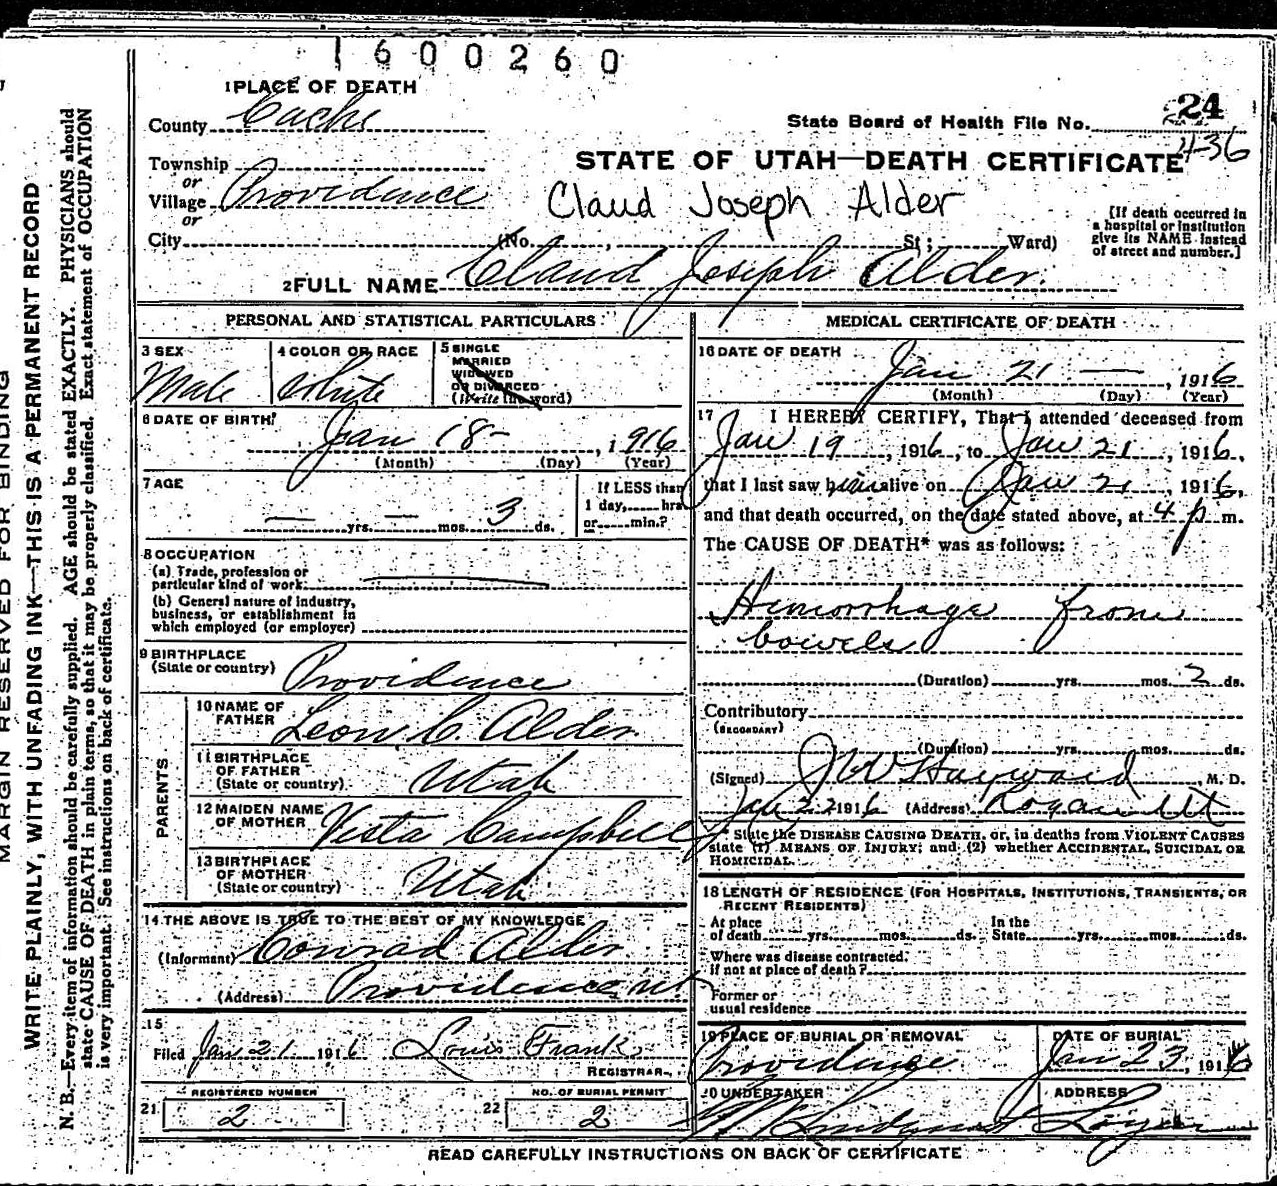 1600260
1 PLACE OF DEATH
County Cache
State Board of Health File No. 24
436
Township
or
Village Providence
or
City (No. , St ; Ward)
STATE OF UTAH—DEATH CERTIFICATE
Claud Joseph Alder
[If death occurred in
a hospital or institution
give its NAME instead
of street and number.]
2 FULL NAME Claud Joseph Alder.
PERSONAL AND STATISTICAL PARTICULARS
3 SEX
Male
4 COLOR OR RACE
White
5 SINGLE
MARRIED
WIDOWED
OR DIVORCED
(Write the word)
6 DATE OF BIRTH
Jan 18 - , 1916
(Month) (Day) (Year)
7 AGE
— yrs. — mos. 3 ds.
If LESS than
1 day, hrs
or min.?
8 OCCUPATION
(a) Trade, profession or
particular kind of work
(b) General nature of industry,
business, or establishment in
which employed (or employer)
9 BIRTHPLACE
(State or country) Providence
PARENTS
10 NAME OF
FATHER Leon C. Alder.
11 BIRTHPLACE
OF FATHER
(State or country) Utah
12 MAIDEN NAME
OF MOTHER Vista Campbell
13 BIRTHPLACE
OF MOTHER
(State or country) Utah
14 THE ABOVE IS TRUE TO THE BEST OF MY KNOWLEDGE
(Informant) Conrad Alder
(Address) Providence, Ut
15
Filed Jan 21 1916 Louis Frank
REGISTRAR
REGISTERED NUMBER
21 2
NO. OF BURIAL PERMIT
22 2
MEDICAL CERTIFICATE OF DEATH
16 DATE OF DEATH
Jan 21 — , 1916
(Month) (Day) (Year)
17 I HEREBY CERTIFY, That I attended deceased from
Jan 19 , 1916, to Jan 21 , 1916,
that I last saw him alive on Jan 21 , 1916,
and that death occurred, on the date stated above, at 4 p m.
The CAUSE OF DEATH* was as follows:
Hemorrhage from
bowels
(Duration) yrs. mos. 2 ds.
Contributory
(SECONDARY)
(Duration) yrs. mos. ds.
(Signed) J W Hayward , M. D.
Jan 22 1916 (Address) Logan Ut
* State the DISEASE CAUSING DEATH, or, in deaths from VIOLENT CAUSES
state (1) MEANS OF INJURY; and (2) whether ACCIDENTAL, SUICIDAL OR
HOMICIDAL.
18 LENGTH OF RESIDENCE (FOR HOSPITALS, INSTITUTIONS, TRANSIENTS, OR
RECENT RESIDENTS)
At place
of death yrs. mos. ds.
In the
State yrs. mos. ds.
Where was disease contracted,
if not at place of death?
Former or
usual residence
19 PLACE OF BURIAL OR REMOVAL
Providence
DATE OF BURIAL
Jan 23 , 1916
20 UNDERTAKER
ADDRESS
Logan
READ CAREFULLY INSTRUCTIONS ON BACK OF CERTIFICATE
MARGIN RESERVED FOR BINDING
WRITE PLAINLY, WITH UNFADING INK—THIS IS A PERMANENT RECORD
N. B.—Every item of information should be carefully supplied. AGE should be stated EXACTLY. PHYSICIANS should
state CAUSE OF DEATH in plain terms, so that it may be properly classified. Exact statement of OCCUPATION
is very important. See instructions on back of certificate.